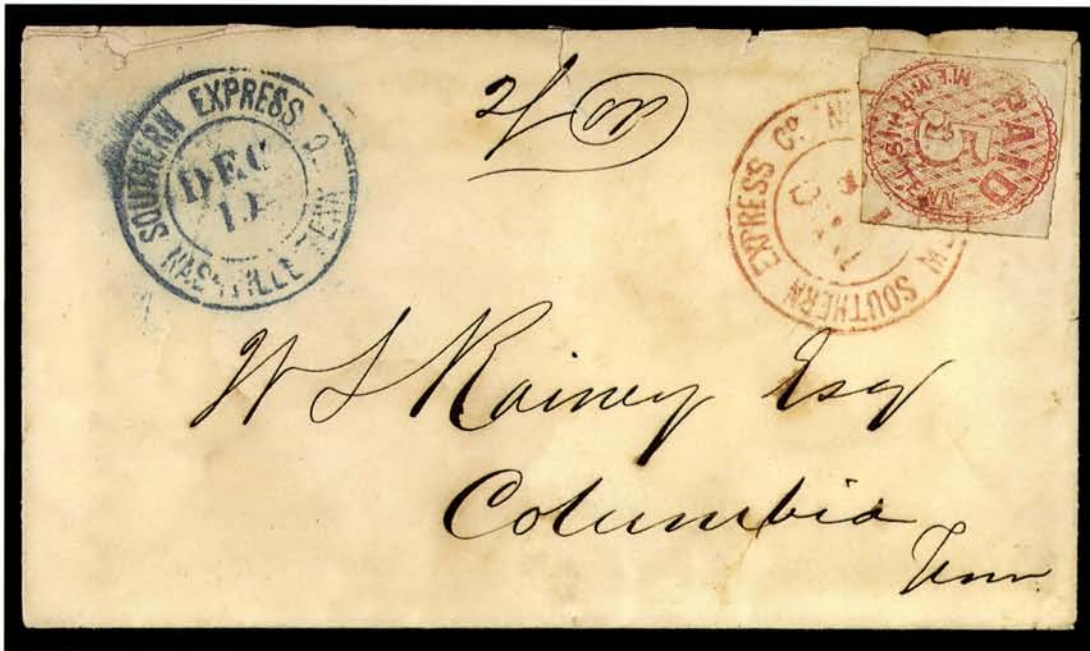 SOUTHERN EXPRESS
DEC
NASHVILLE TENN
2/
SOUTHERN EXPRESS CO.
PAID
5
MEMPHIS
TENN.
W S Rainey Esq
Columbia
Tenn